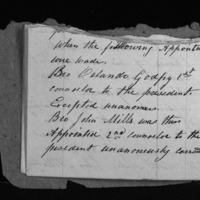 when the following Appointm
were made.
Bro Orlando Godfry 1st
counselor to the presedent
Excepted unanomes.
Bro John Mills was then
Appointed 2nd counselor to the
presedent unanomously